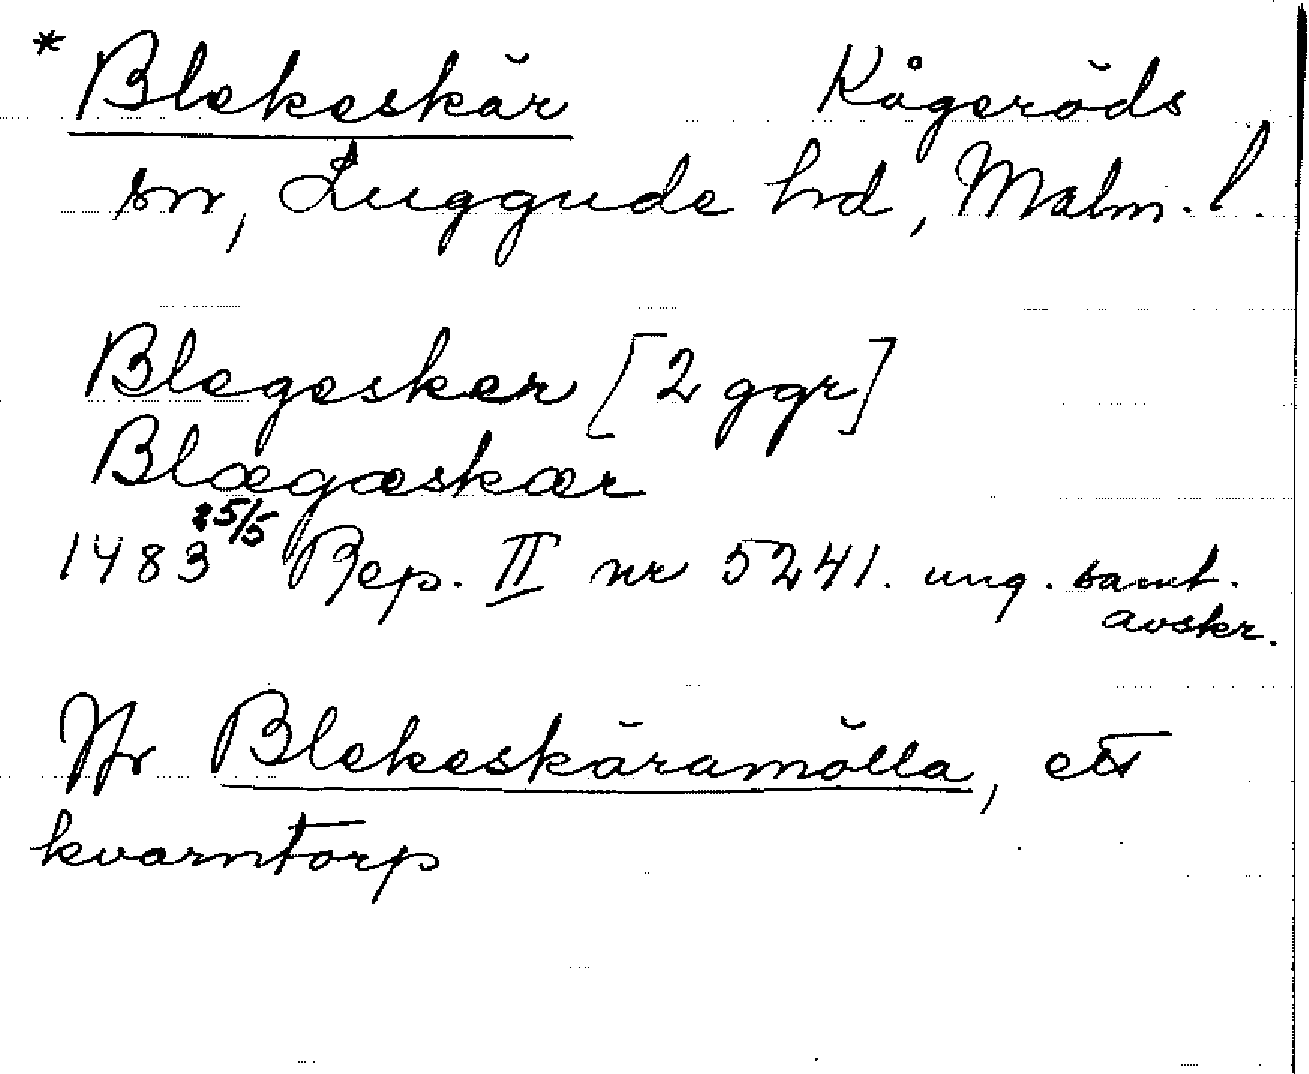 * Blekeskär Kågeröds
sn, Luggude hd, Malm. l.
Blegesker [2 ggr]
Blægæskær
1483 25/5 Rep. II nr 5241. ung. samt.
avskr.
Jfr Blekeskäramölla, ett
kvarntorp